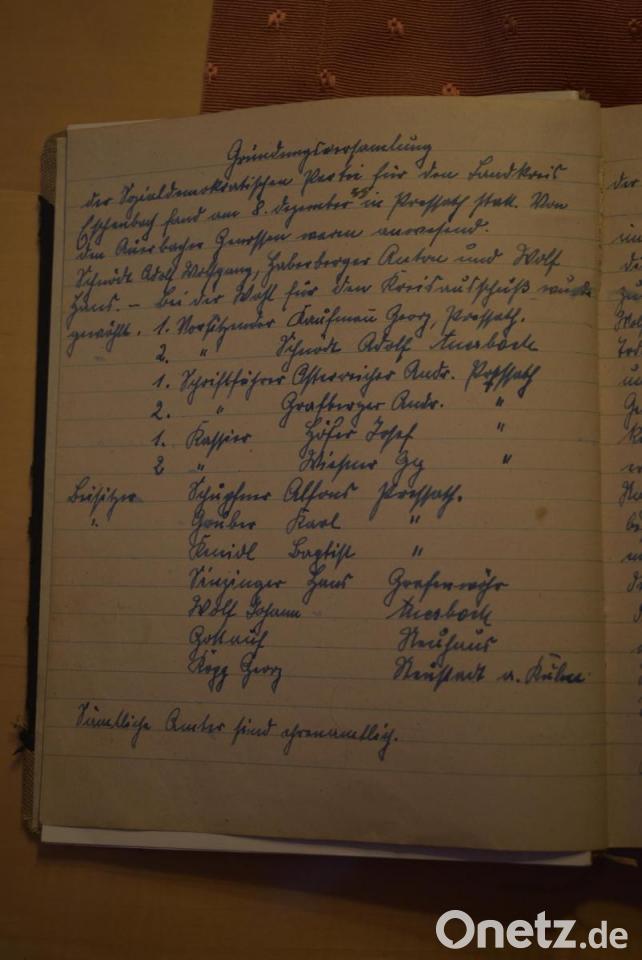 Gründungsversamlung
der Sozialdemokratischen Partei für den Landkreis
Eschenbach fand am 8. Dezember 45 in Pressath statt. Von
den Auerbacher Genossen waren anwesend.
Schnödt Adolf Wolfgang, Haberberger Anton und Wolf
Hans. – Bei der Wahl für den Kreisausschuß wurde
gewählt. 1. Vorsitzender Kaufman Georg, Pressath.
2. " Schnödt Adolf Auerbach
1. Schriftführer Österreicher Andr. Pressath
2. " Grafberger Andr. "
1. Kassier Höfer Josef "
2 " Wiesner Gg "
Beisitzer Alfons Pressath.
" Gruber Karl "
Baptist "
Sinzinger Hans Grafenwöhr
Wolf Johann Auerbach
Gottauf Neuhaus
Kögg Georg Neustadt a. Kulm
Sämtliche Ämter sind ehrenamtlich.
der
Onetz.de